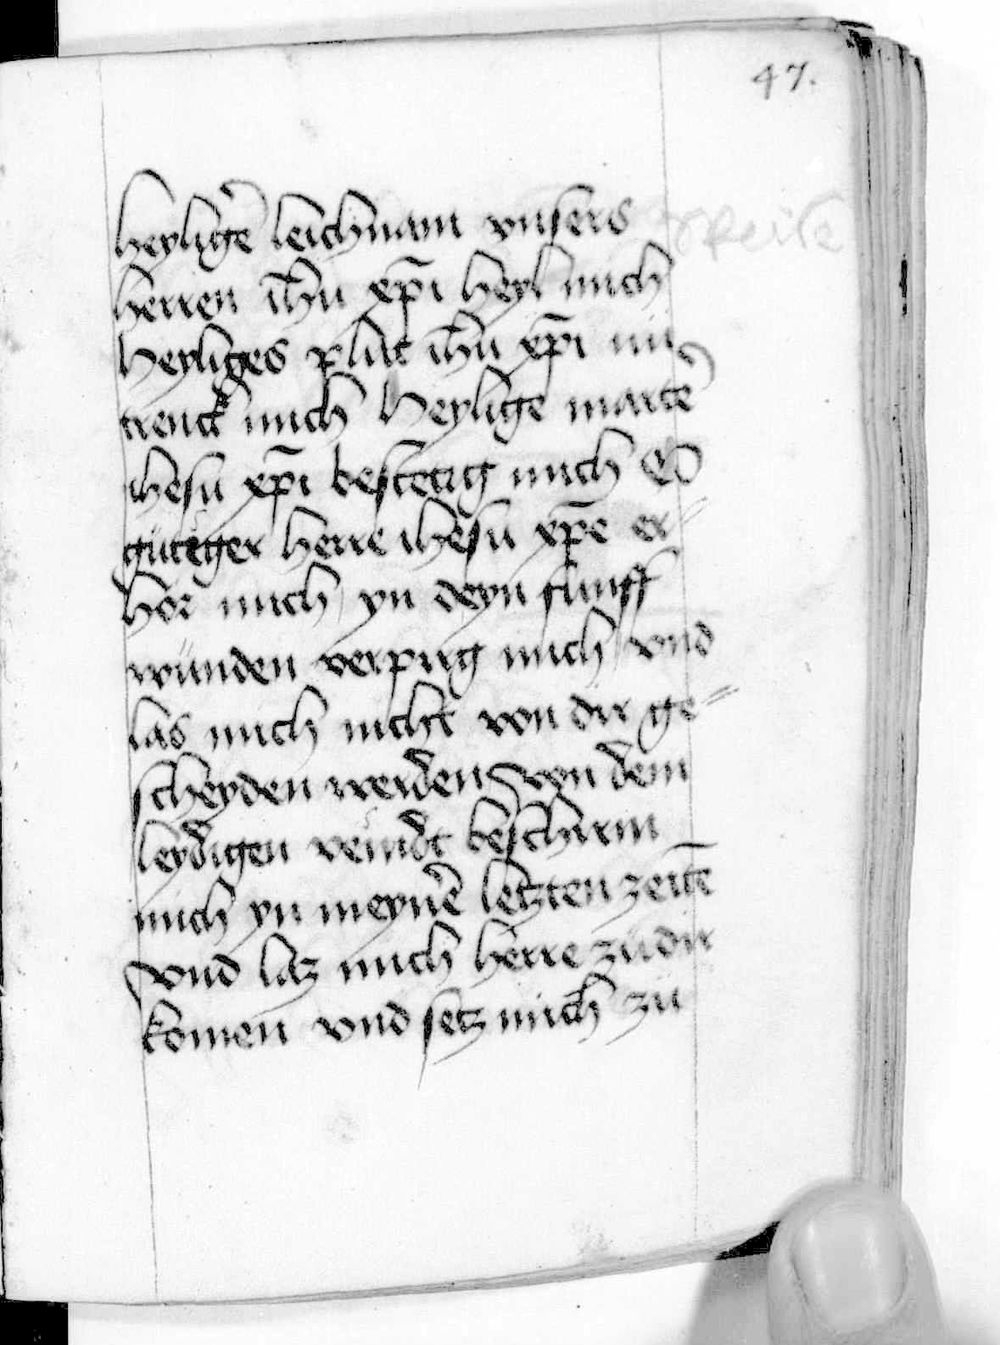 47.
heyliger leichnam vnsers
herren ih̄u xp̄i heyl mich
heyliges plut ih̄u xp̄i
trenck mich Heylige marter
ihesu xp̄i bestetig mich O
gutiger herre ihesu xp̄e er-
hor mich yn deyn funff
wunden verpirg mich vnd
las mich nicht von dir ge-
scheyden werden von dem
leydigen veindt beschirm
mich yn meyner letzten zeitē
vnd laz mich herre zu dir
komen vnd setz mich zu